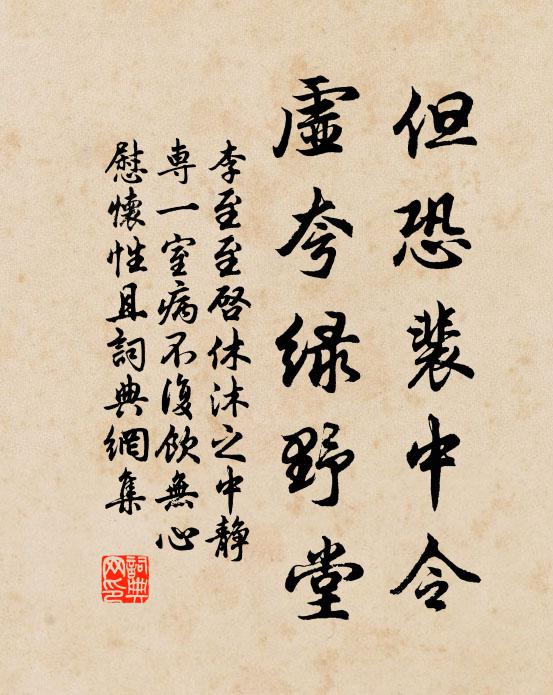 但恐裴中令
虛夸绿野堂
李至至啓休沐之中静
専一室病不復飲無心
慰懷性且詞典網集
詞典网印